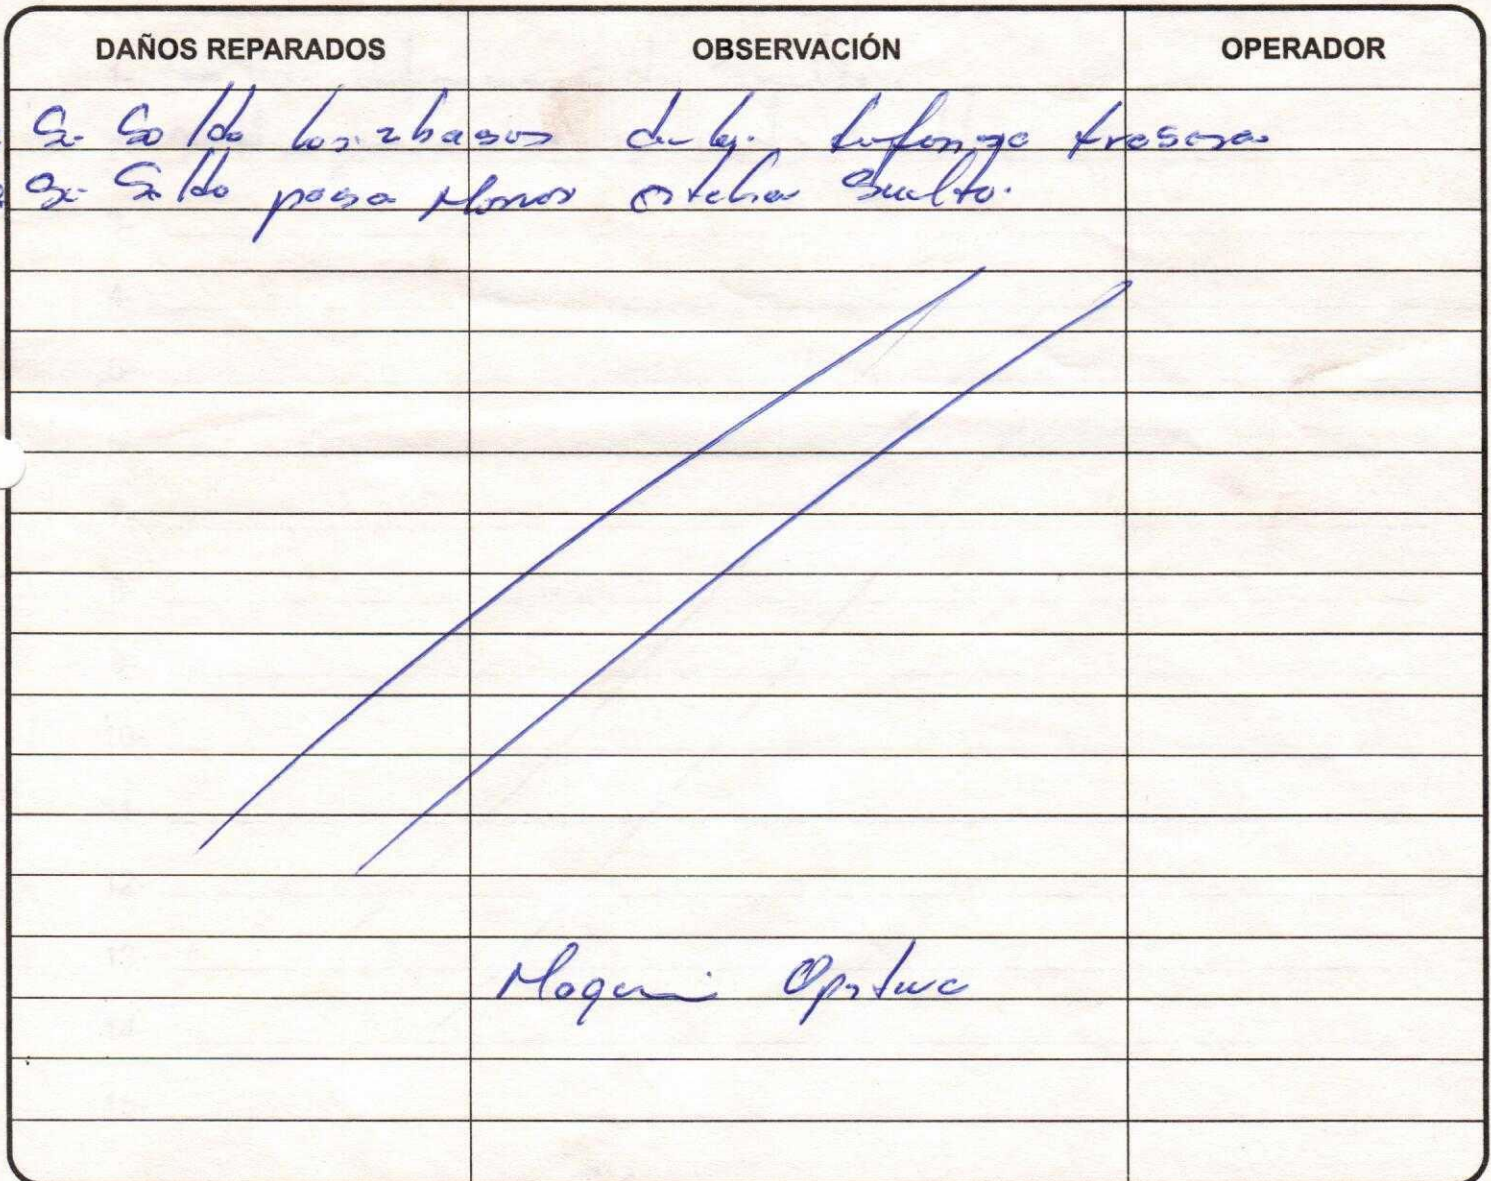 DAÑOS REPARADOS OBSERVACIÓN OPERADOR
Se Soldo los 2 basos de la trasera
Se Soldo pasa Manos estaba Suelto.
Maquina Operativa